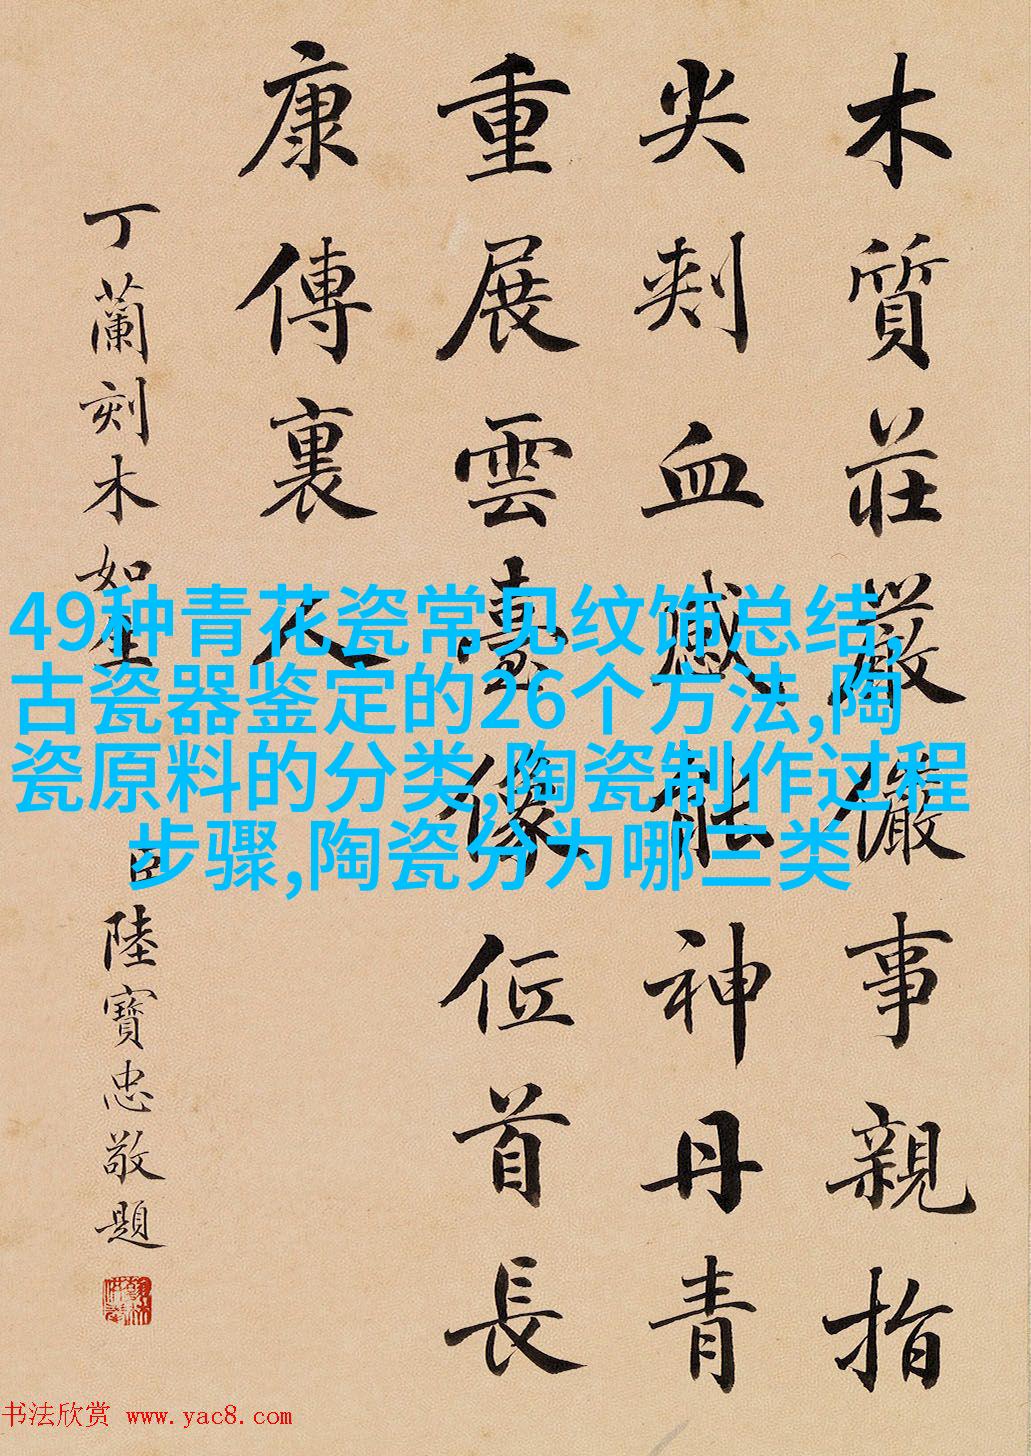 木質莊嚴儼事親指
尖刾血感能神丹青
重展雲臺像低首長
康傳裏人
丁蘭刻木如生
臣陸寶忠敬題
49种青花瓷常见纹饰总结,
古瓷器鉴定的26个方法,陶
瓷原料的分类,陶瓷制作过程
步骤,陶瓷分为哪三类
书法欣赏 www.yac8.com